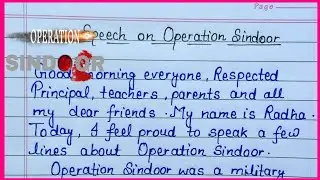 Page
Speech on Operation Sindoor
OPERATION
SINDOOR
Good morning everyone, Respected
Principal, teachers, parents and all
my dear friends. My name is Radha.
Today, I feel proud to speak a few
lines about Operation Sindoor.
Operation Sindoor was a military